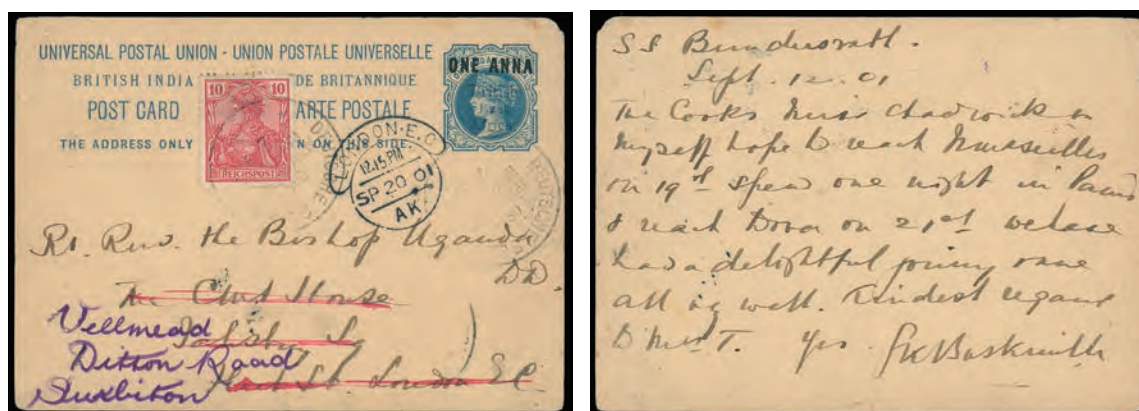 UNIVERSAL POSTAL UNION - UNION POSTALE UNIVERSELLE
BRITISH INDIA DE BRITANNIQUE
POST CARD ARTE POSTALE
THE ADDRESS ONLY N ON THIS SIDE.
ONE ANNA
10 10
REICHSPOST
LONDON·E.C
12.15 PM
SP 20 01
AK
Rt Rev. the Bishop Uganda
DD.
House
London E C
Vellmead
Ditton Road
Surbiton
SS Bundesrath.
Sept. 12. 01
The Cooks Miss Chadwick &
myself hope to reach Marseilles
on 19th spend one night in Paris
& reach Dover on 21st we have
had a delightful journey
all well. Kindest regards
to Mrs T. Yrs